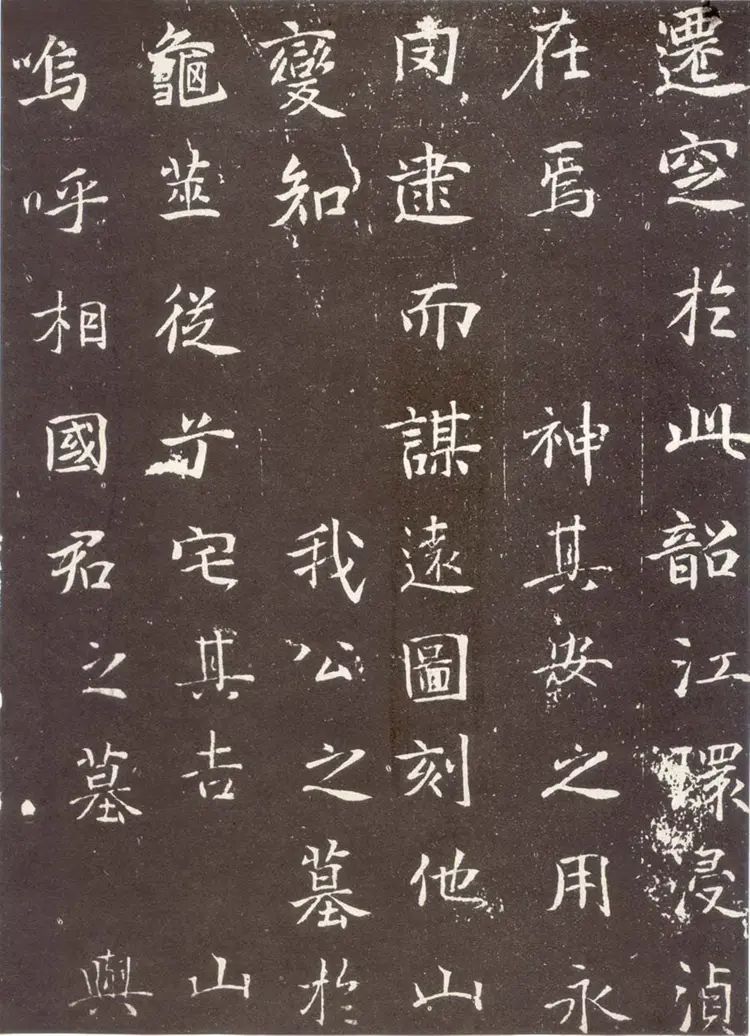 遷窆於此韶江環浸湞
在焉 神其安之用永
罔逮而謀遠圖刻他山
變知 我公之墓於
龜筮從兮宅其吉 山
嗚呼相國君之墓 與